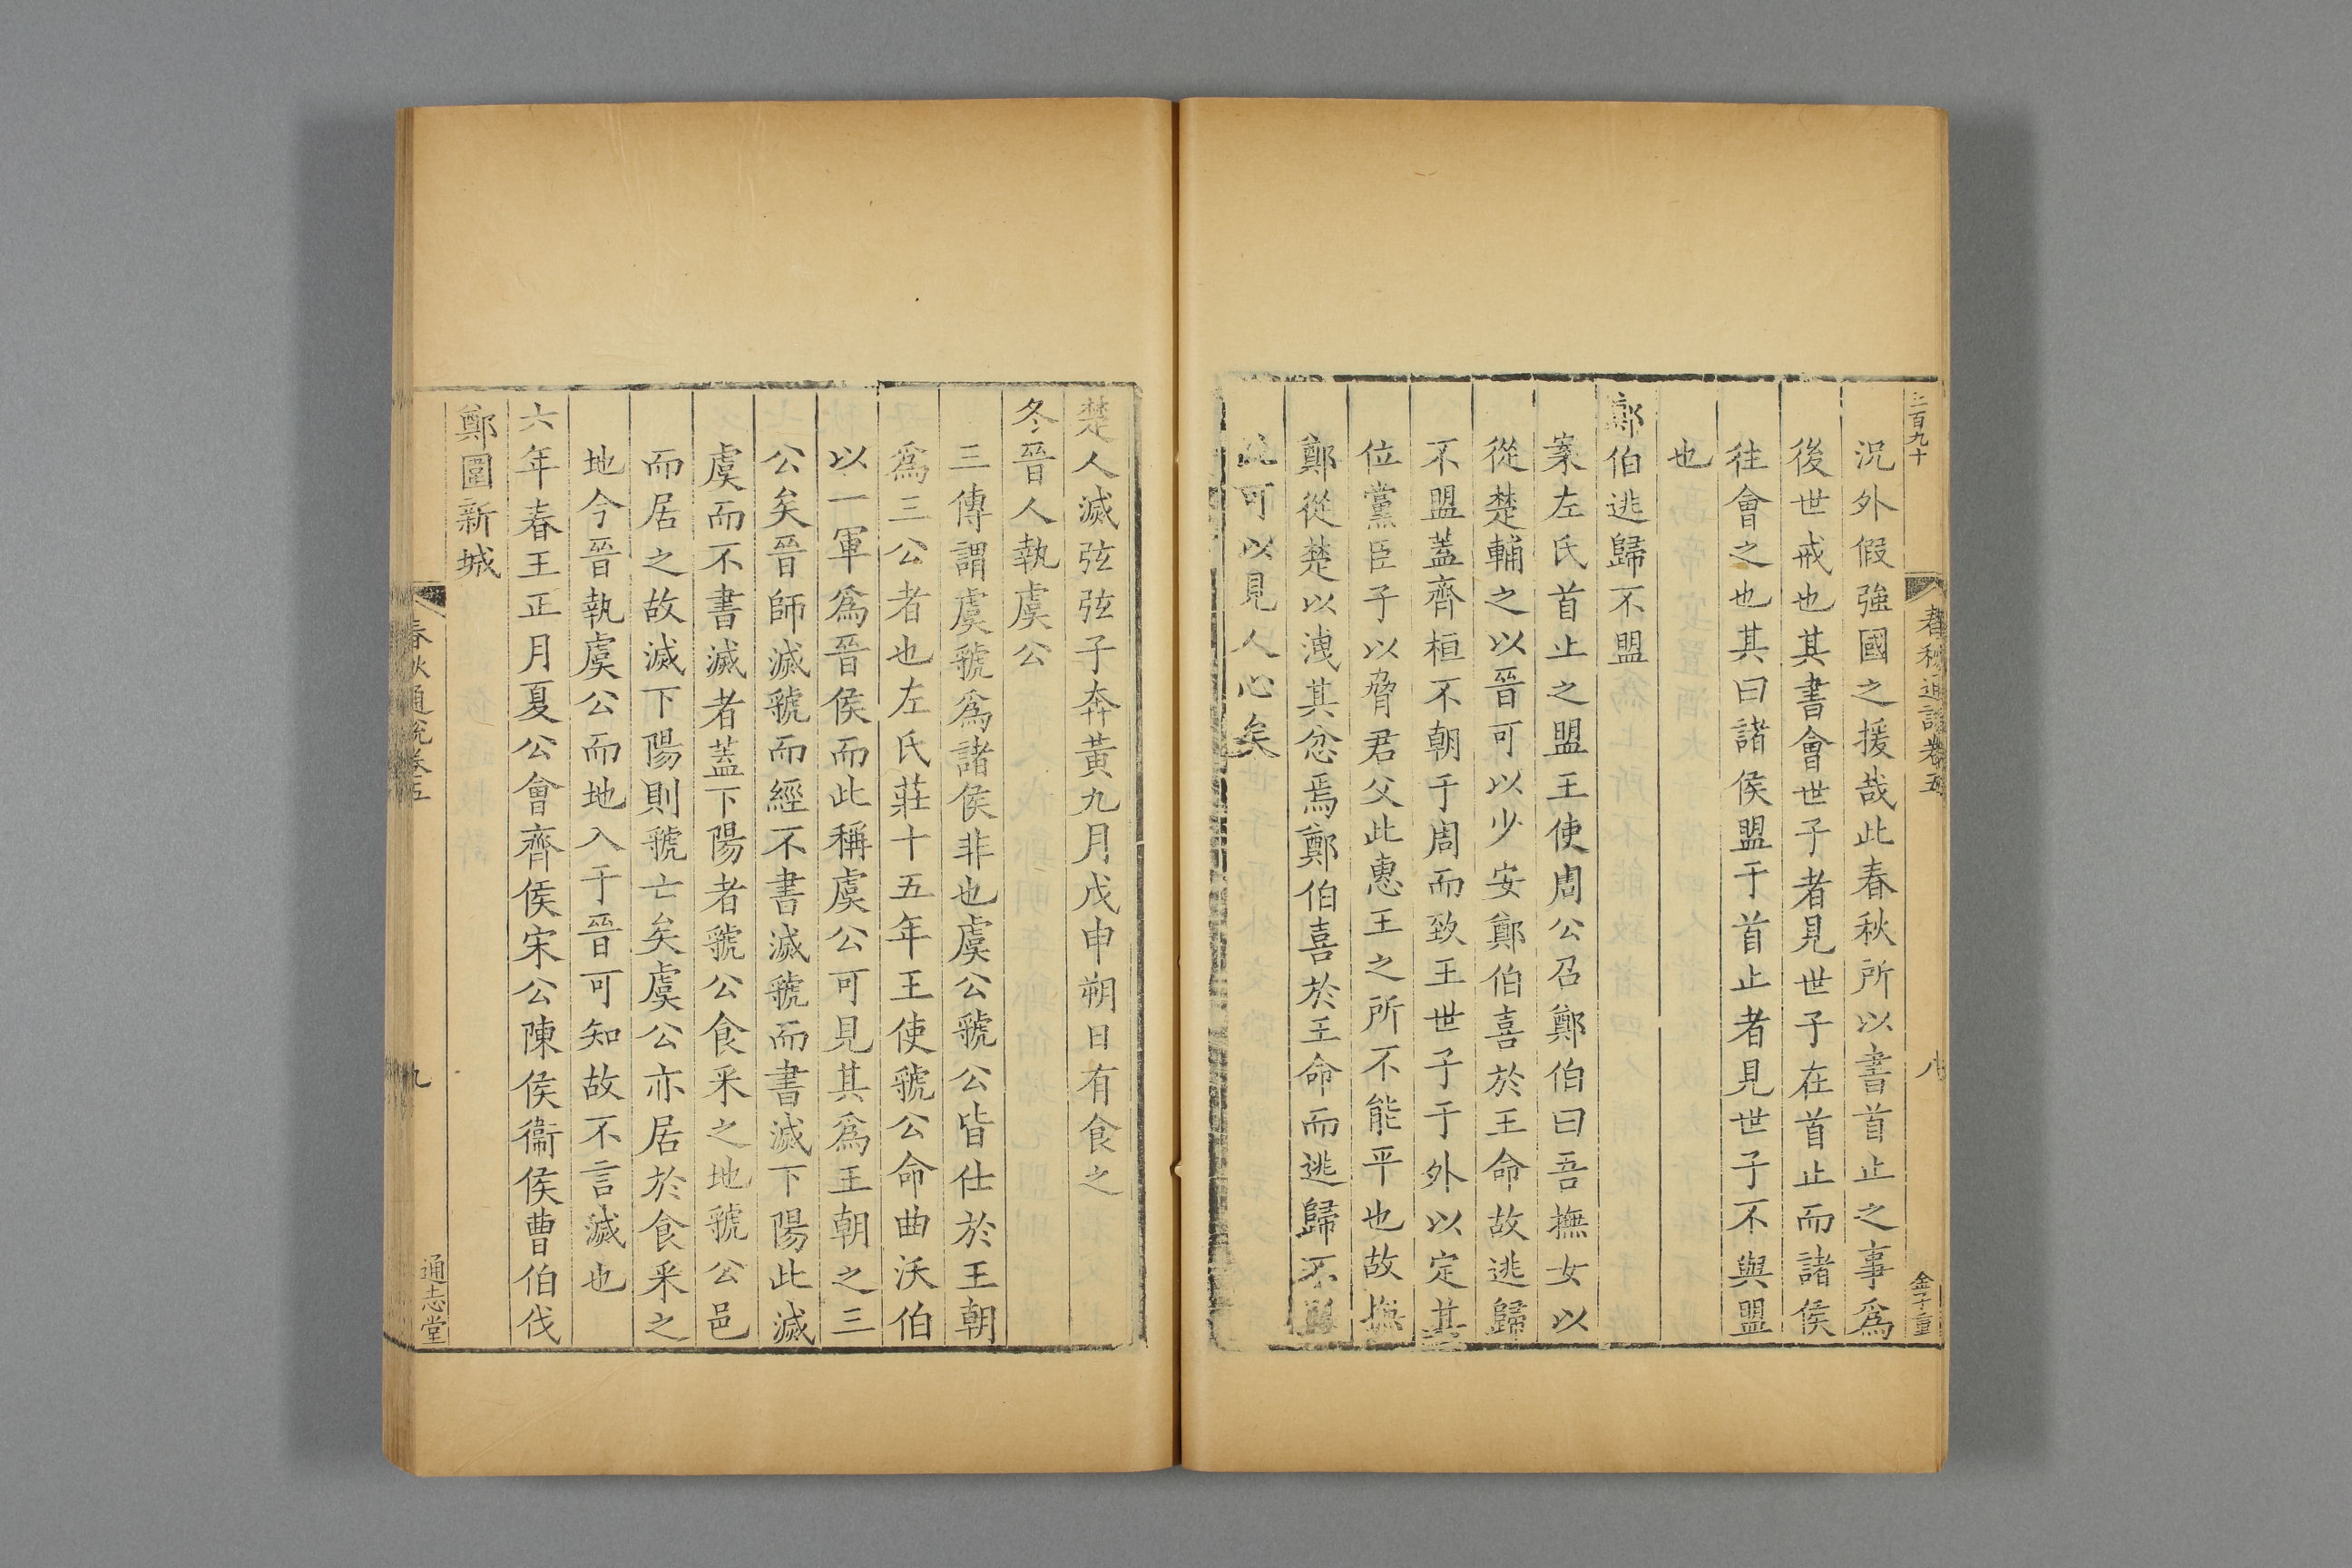 百九十
春秋通說卷五
八
金子重
況外假強國之援哉此春秋所以書首止之事爲
後世戒也其書會世子者見世子在首止而諸侯
往會之也其曰諸侯盟于首止者見世子不與盟
也
鄭伯逃歸不盟
案左氏首止之盟王使周公召鄭伯曰吾撫女以
從楚輔之以晉可以少安鄭伯喜於王命故逃歸
不盟蓋齊桓不朝于周而致王世子于外以定其
位黨臣子以脅君父此惠王之所不能平也故撫
鄭從楚以洩其忿焉鄭伯喜於王命而逃歸不
可以見人心矣
楚人滅弦弦子奔黃九月戊申朔日有食之
冬晉人執虞公
三傳謂虞虢爲諸侯非也虞公虢公皆仕於王朝
爲三公者也左氏莊十五年王使虢公命曲沃伯
以一軍爲晉侯而此稱虞公可見其爲王朝之三
公矣晉師滅虢而經不書滅虢而書滅下陽此滅
虞而不書滅者蓋下陽者虢公食釆之地虢公邑
而居之故滅下陽則虢亡矣虞公亦居於食釆之
地今晉執虞公而地入于晉可知故不言滅也
六年春王正月夏公會齊侯宋公陳侯衞侯曹伯伐
鄭圍新城
春秋通說卷五
九
通志堂